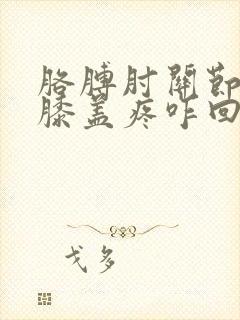 胳膊肘關節
膝蓋疼咋回
戈多